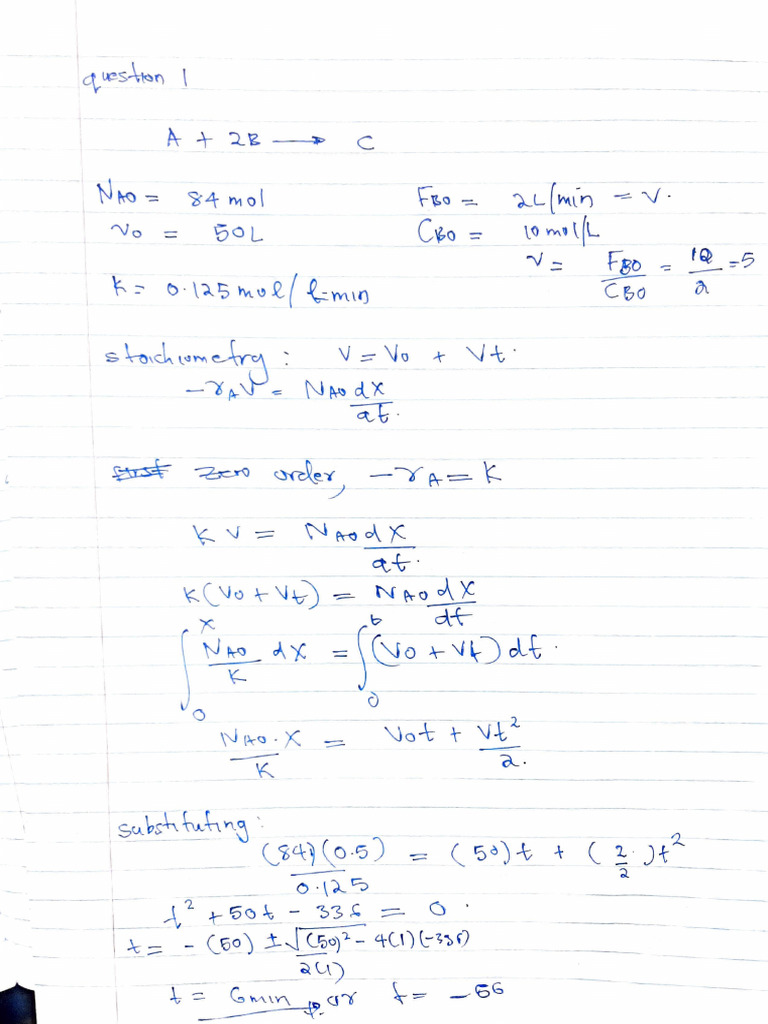 question 1
A + 2B ⟶ C
NA0 = 84 mol FB0 = 2L/min = v.
V0 = 50L CB0 = 10 mol/L
v = FB0/CB0 = 10/2 = 5
K = 0.125 mol/L-min
stoichiometry: V = V0 + Vt.
-rAV = NA0 dX/dt.
Zero order, -rA = K
K V = NA0 dX/dt.
K(V0 + Vt) = NA0 dX/dt
∫0^X NA0/K dX = ∫0^t (V0 + Vt) dt.
NA0.X/K = V0t + Vt²/2.
substituting:
(84)(0.5)/0.125 = (50)t + (2/2)t²
t² + 50t - 336 = 0.
t = -(50) ± √(50)² - 4(1)(-336)/2(1)
t = 6min or t = -56